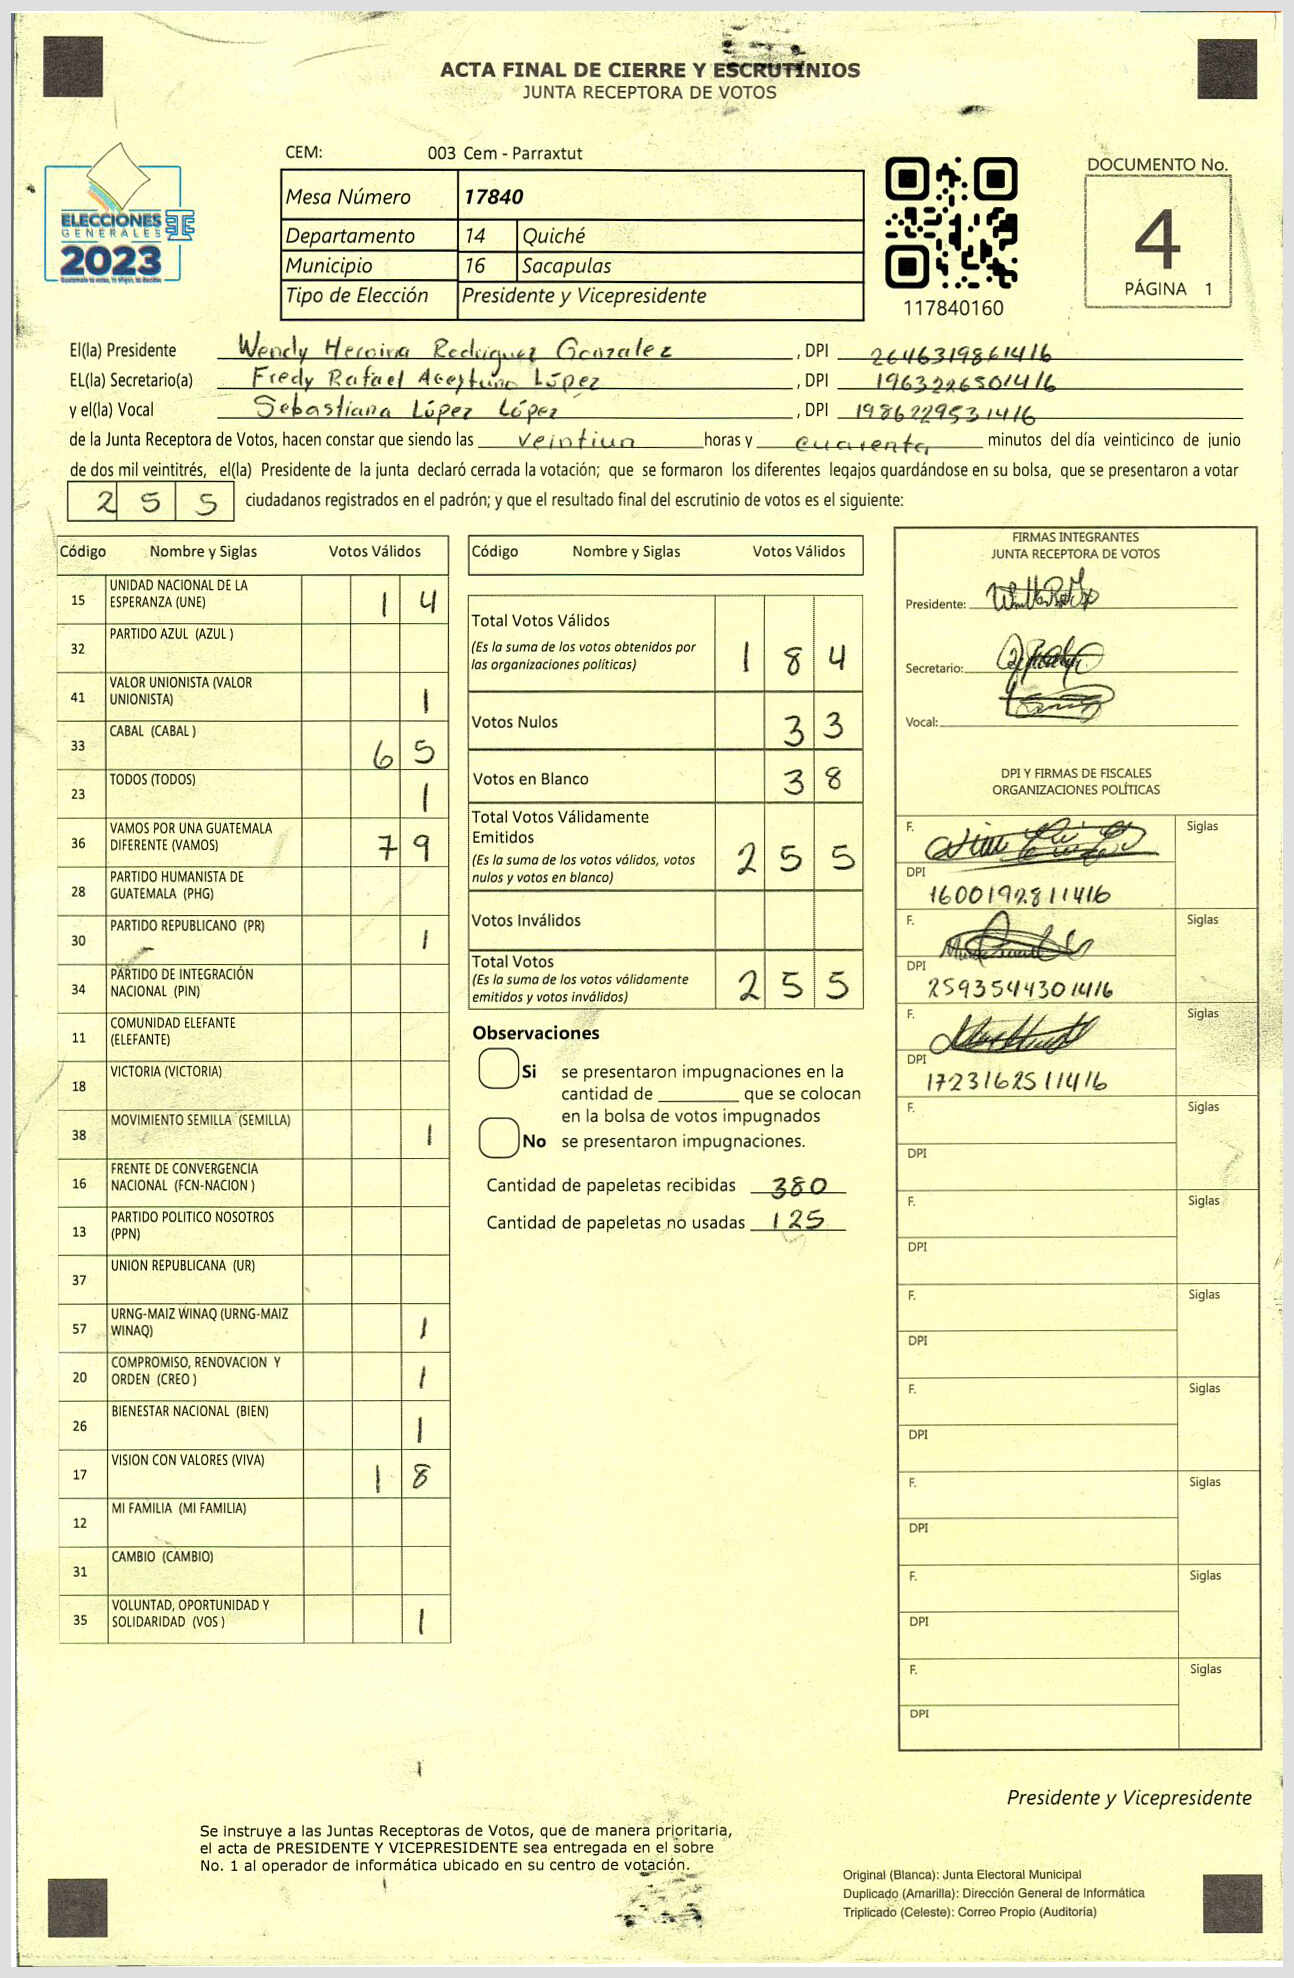 ACTA FINAL DE CIERRE Y ESCRUTINIOS
JUNTA RECEPTORA DE VOTOS
CEM: 003 Cem - Parraxtut
Mesa Número 17840
Departamento 14 Quiché
Municipio 16 Sacapulas
Tipo de Elección Presidente y Vicepresidente
ELECCIONES
GENERALES
2023
117840160
DOCUMENTO No.
4
PÁGINA 1
El(la) Presidente Wendy Heroina Rodriguez Gonzalez, DPI 2646319861416
EL(la) Secretario(a) Fredy Rafael Aceytuno López, DPI 1963226501416
y el(la) Vocal Sebastiana López López, DPI 1986229531416
de la Junta Receptora de Votos, hacen constar que siendo las veintiun horas y cuarenta minutos del día veinticinco de junio
de dos mil veintitrés, el(la) Presidente de la junta declaró cerrada la votación; que se formaron los diferentes legajos guardándose en su bolsa, que se presentaron a votar
255 ciudadanos registrados en el padrón; y que el resultado final del escrutinio de votos es el siguiente:
Código Nombre y Siglas Votos Válidos
15 UNIDAD NACIONAL DE LA ESPERANZA (UNE) 14
32 PARTIDO AZUL (AZUL )
41 VALOR UNIONISTA (VALOR UNIONISTA) 1
33 CABAL (CABAL ) 65
23 TODOS (TODOS) 1
36 VAMOS POR UNA GUATEMALA DIFERENTE (VAMOS) 79
28 PARTIDO HUMANISTA DE GUATEMALA (PHG)
30 PARTIDO REPUBLICANO (PR) 1
34 PARTIDO DE INTEGRACIÓN NACIONAL (PIN)
11 COMUNIDAD ELEFANTE (ELEFANTE)
18 VICTORIA (VICTORIA)
38 MOVIMIENTO SEMILLA (SEMILLA) 1
16 FRENTE DE CONVERGENCIA NACIONAL (FCN-NACION )
13 PARTIDO POLITICO NOSOTROS (PPN)
37 UNION REPUBLICANA (UR)
57 URNG-MAIZ WINAQ (URNG-MAIZ WINAQ) 1
20 COMPROMISO, RENOVACION Y ORDEN (CREO ) 1
26 BIENESTAR NACIONAL (BIEN) 1
17 VISION CON VALORES (VIVA) 18
12 MI FAMILIA (MI FAMILIA)
31 CAMBIO (CAMBIO)
35 VOLUNTAD, OPORTUNIDAD Y SOLIDARIDAD (VOS ) 1
Código Nombre y Siglas Votos Válidos
Total Votos Válidos 184
(Es la suma de los votos obtenidos por
las organizaciones políticas)
Votos Nulos 33
Votos en Blanco 38
Total Votos Válidamente
Emitidos 255
(Es la suma de los votos válidos, votos
nulos y votos en blanco)
Votos Inválidos
Total Votos 255
(Es la suma de los votos válidamente
emitidos y votos inválidos)
Observaciones
Si se presentaron impugnaciones en la
cantidad de ________ que se colocan
en la bolsa de votos impugnados
No se presentaron impugnaciones.
Cantidad de papeletas recibidas 380
Cantidad de papeletas no usadas 125
FIRMAS INTEGRANTES
JUNTA RECEPTORA DE VOTOS
Presidente:
Secretario:
Vocal:
DPI Y FIRMAS DE FISCALES
ORGANIZACIONES POLÍTICAS
F. Siglas
DPI 1600192811416
F. Siglas
DPI 2593544301416
F. Siglas
DPI 1723162511416
F. Siglas
DPI
F. Siglas
DPI
F. Siglas
DPI
F. Siglas
DPI
F. Siglas
DPI
F. Siglas
DPI
F. Siglas
DPI
Presidente y Vicepresidente
Se instruye a las Juntas Receptoras de Votos, que de manera prioritaria,
el acta de PRESIDENTE Y VICEPRESIDENTE sea entregada en el sobre
No. 1 al operador de informática ubicado en su centro de votación.
Original (Blanca): Junta Electoral Municipal
Duplicado (Amarilla): Dirección General de Informática
Triplicado (Celeste): Correo Propio (Auditoría)